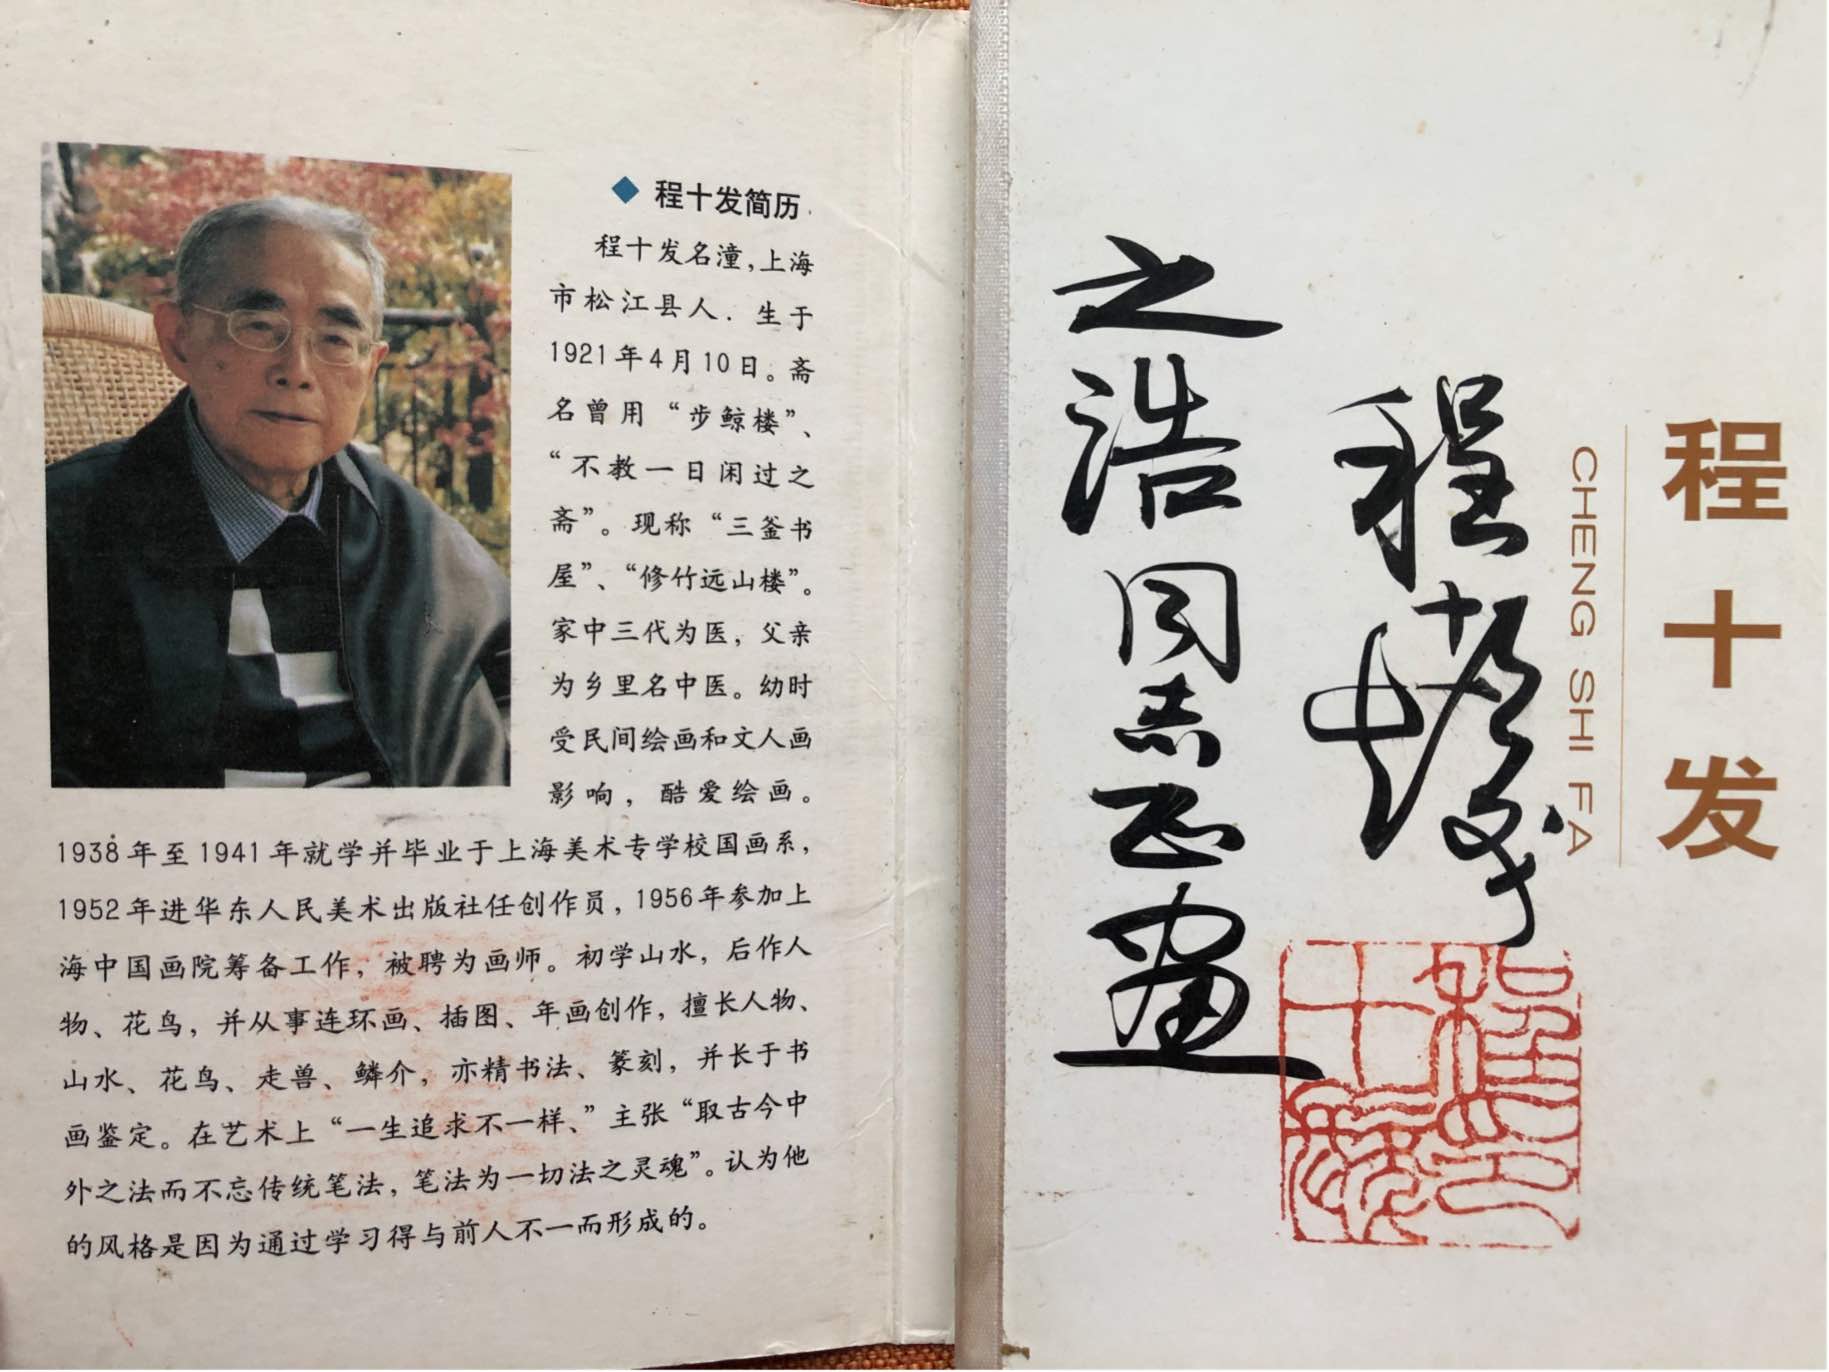 ◆ 程十发简历
程十发名潼，上海
市松江县人．生于
1921年4月10日。斋
名曾用“步鲸楼”、
“不教一日闲过之
斋”。现称“三釜书
屋”、“修竹远山楼”。
家中三代为医，父亲
为乡里名中医。幼时
受民间绘画和文人画
影响，酷爱绘画。
1938年至1941年就学并毕业于上海美术专学校国画系，
1952年进华东人民美术出版社任创作员，1956年参加上
海中国画院筹备工作，被聘为画师。初学山水，后作人
物、花鸟，并从事连环画、插图、年画创作，擅长人物、
山水、花鸟、走兽、鳞介，亦精书法、篆刻，并长于书
画鉴定。在艺术上“一生追求不一样、”主张“取古今中
外之法而不忘传统笔法，笔法为一切法之灵魂”。认为他
的风格是因为通过学习得与前人不一而形成的。
程十发
CHENG SHI FA
之浩同志正画
程十髮
程十髮印